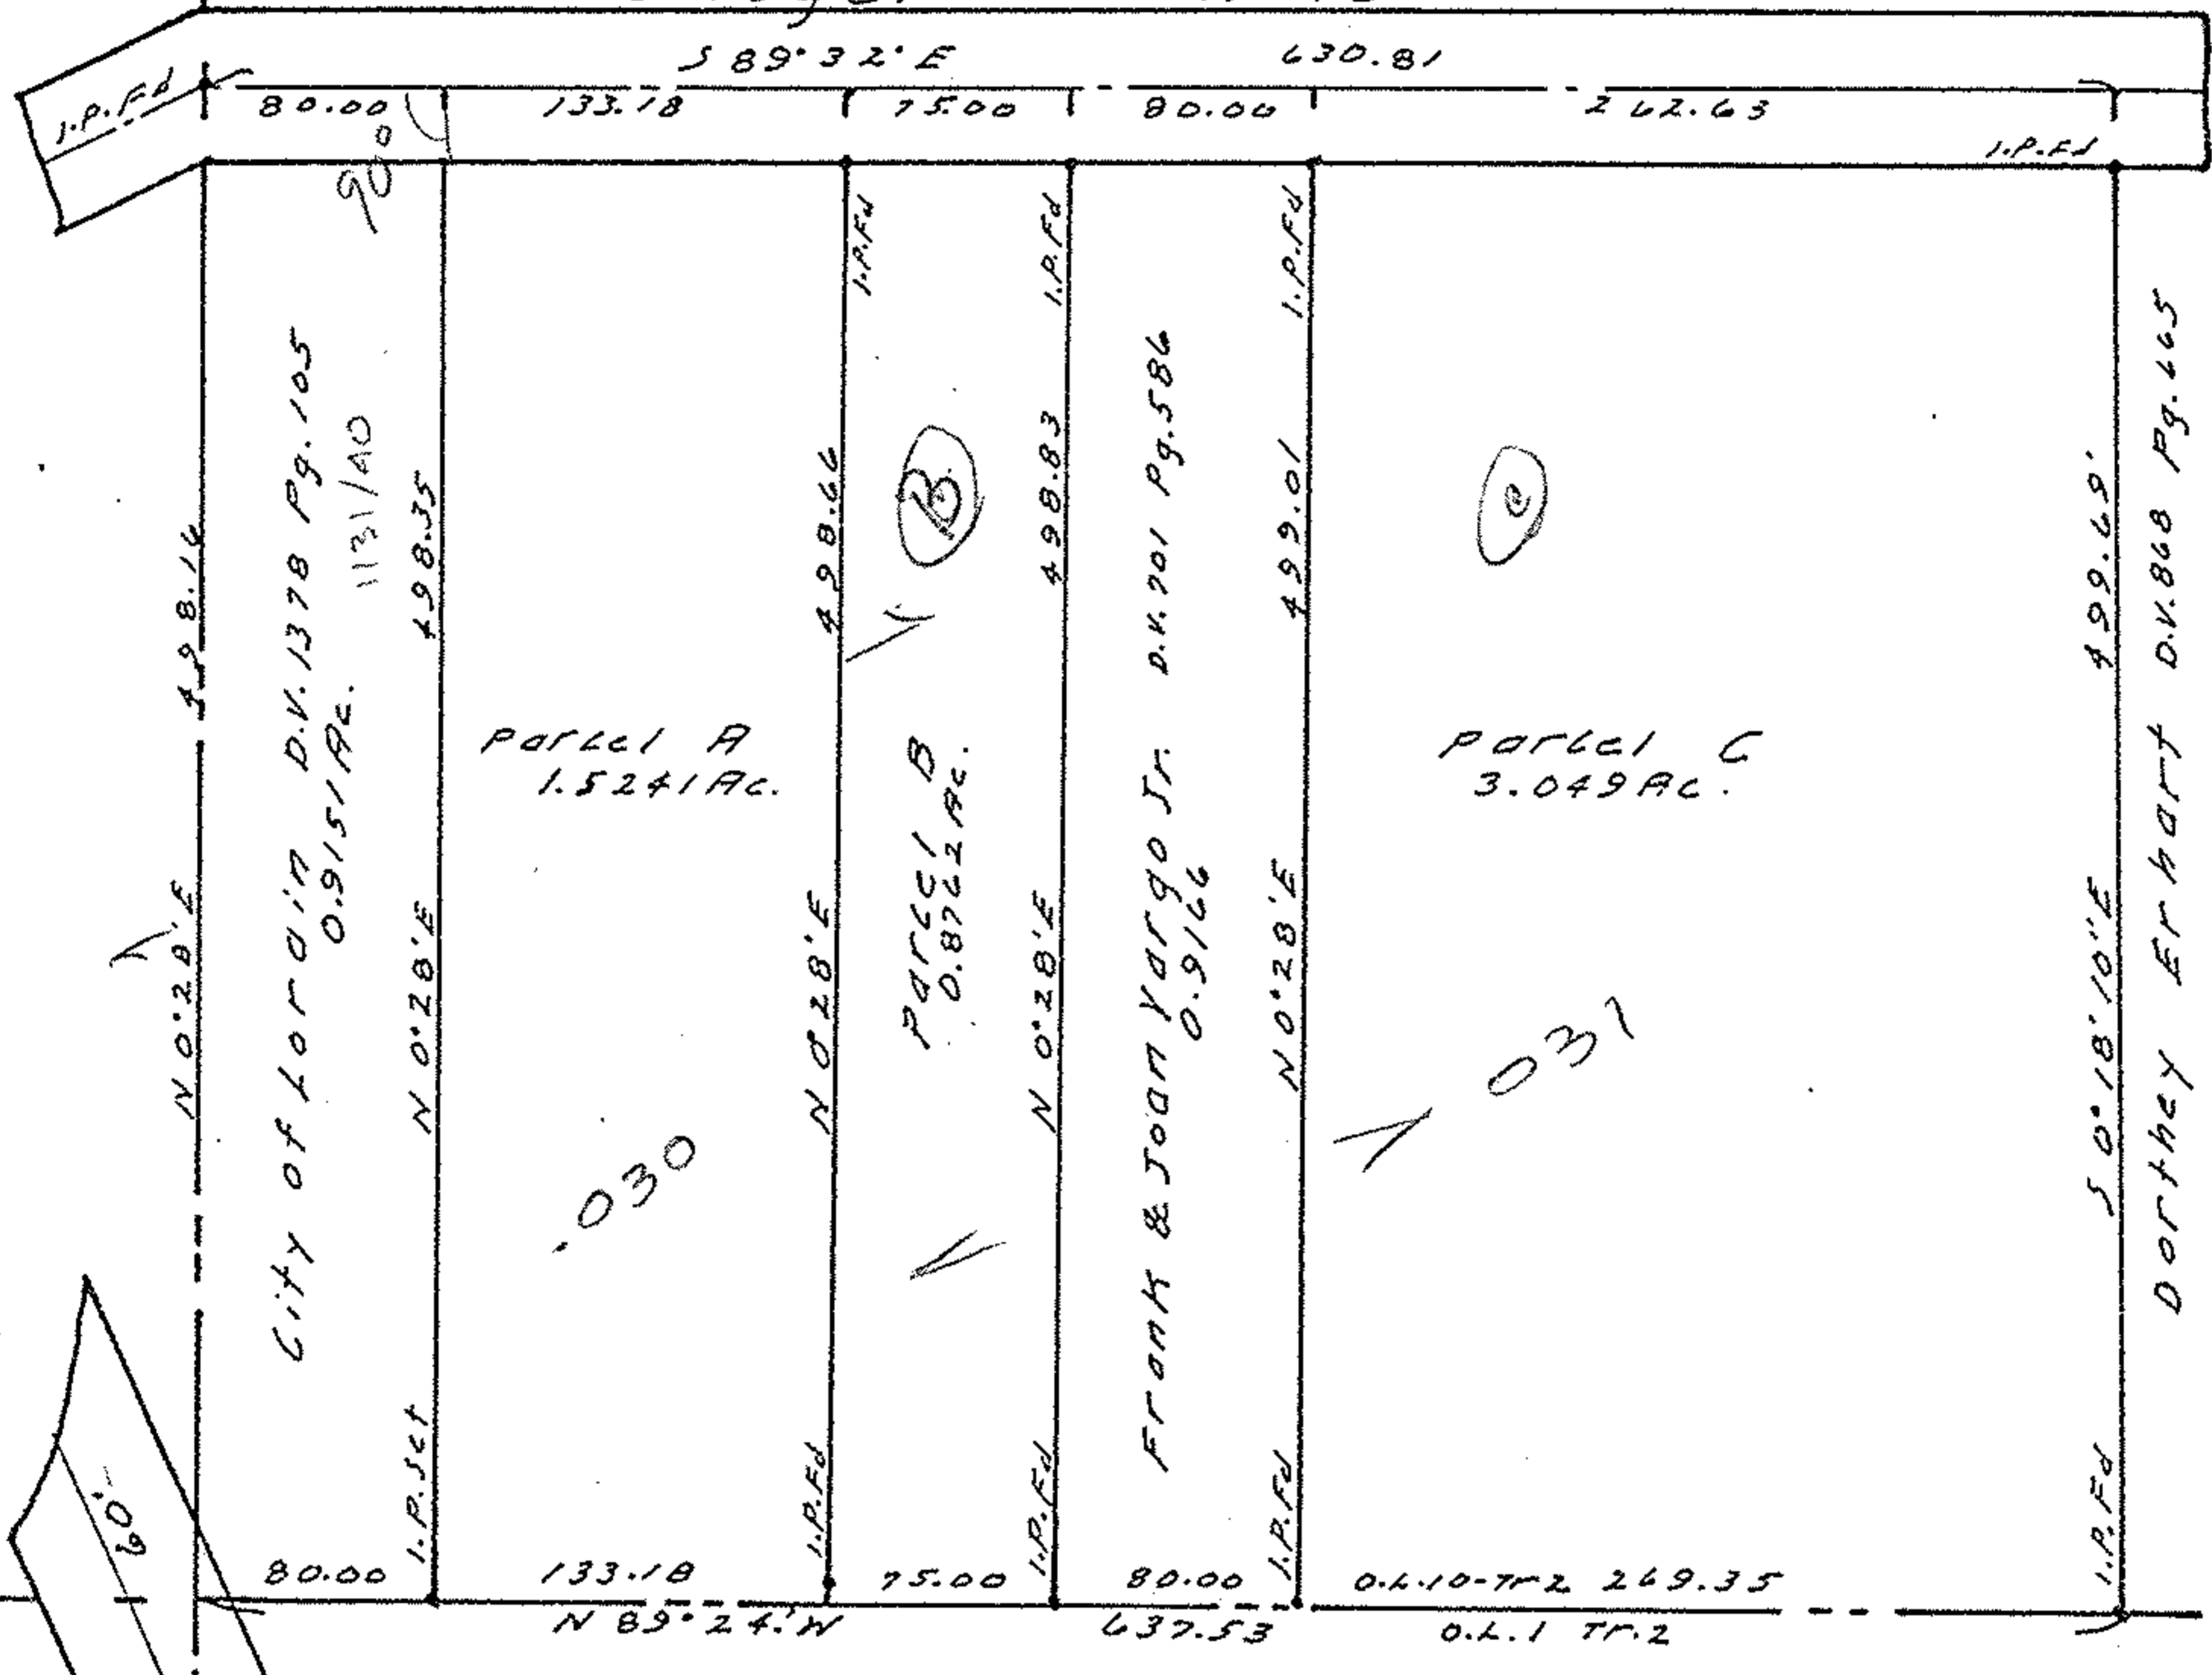 S 89°32' E 630.81
I.P.Fd
80.00 133.18 75.00 80.00 262.63
90°
I.P.Fd
I.P.Fd
I.P.Fd
I.P.Fd
N 0°28' E 498.16
City of Lorain D.V. 1378 Pg. 105
0.9151 Ac.
1131/A0
N 0°28' E 498.35
I.P. Set
Parcel A
1.5241 Ac.
.030
N 0°28' E 498.66
I.P.Fd
B
Parcel B
0.8762 Ac.
N 0°28' E 498.83
I.P.Fd
Frank & Joan Vargo Jr. D.V. 701 Pg. 586
0.9166
N 0°28' E 499.01
I.P.Fd
C
Parcel C
3.049 Ac.
031
S 0°18'10" E 499.69'
I.P.Fd
Dorthey Erhart D.V. 868 Pg. 665
60'
80.00 133.18 75.00 80.00 O.L.10-Tr 2 269.35
N 89°24' W 637.53 O.L.1 Tr.2